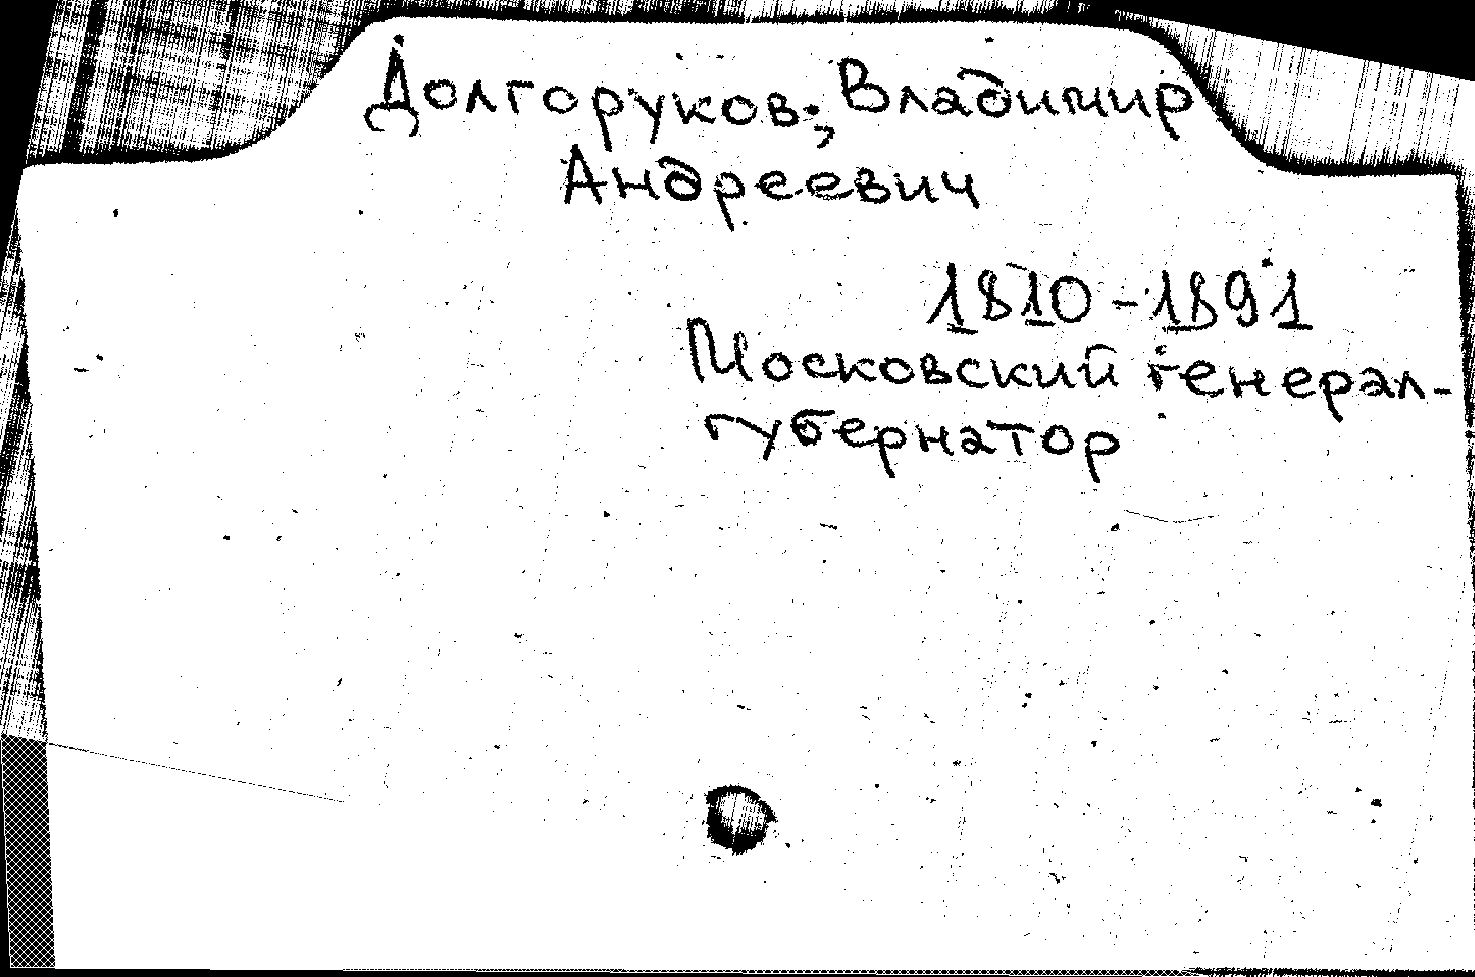 Долгоруков, Владимир
Андреевич
1810-1891
Московский генерал-
губернатор